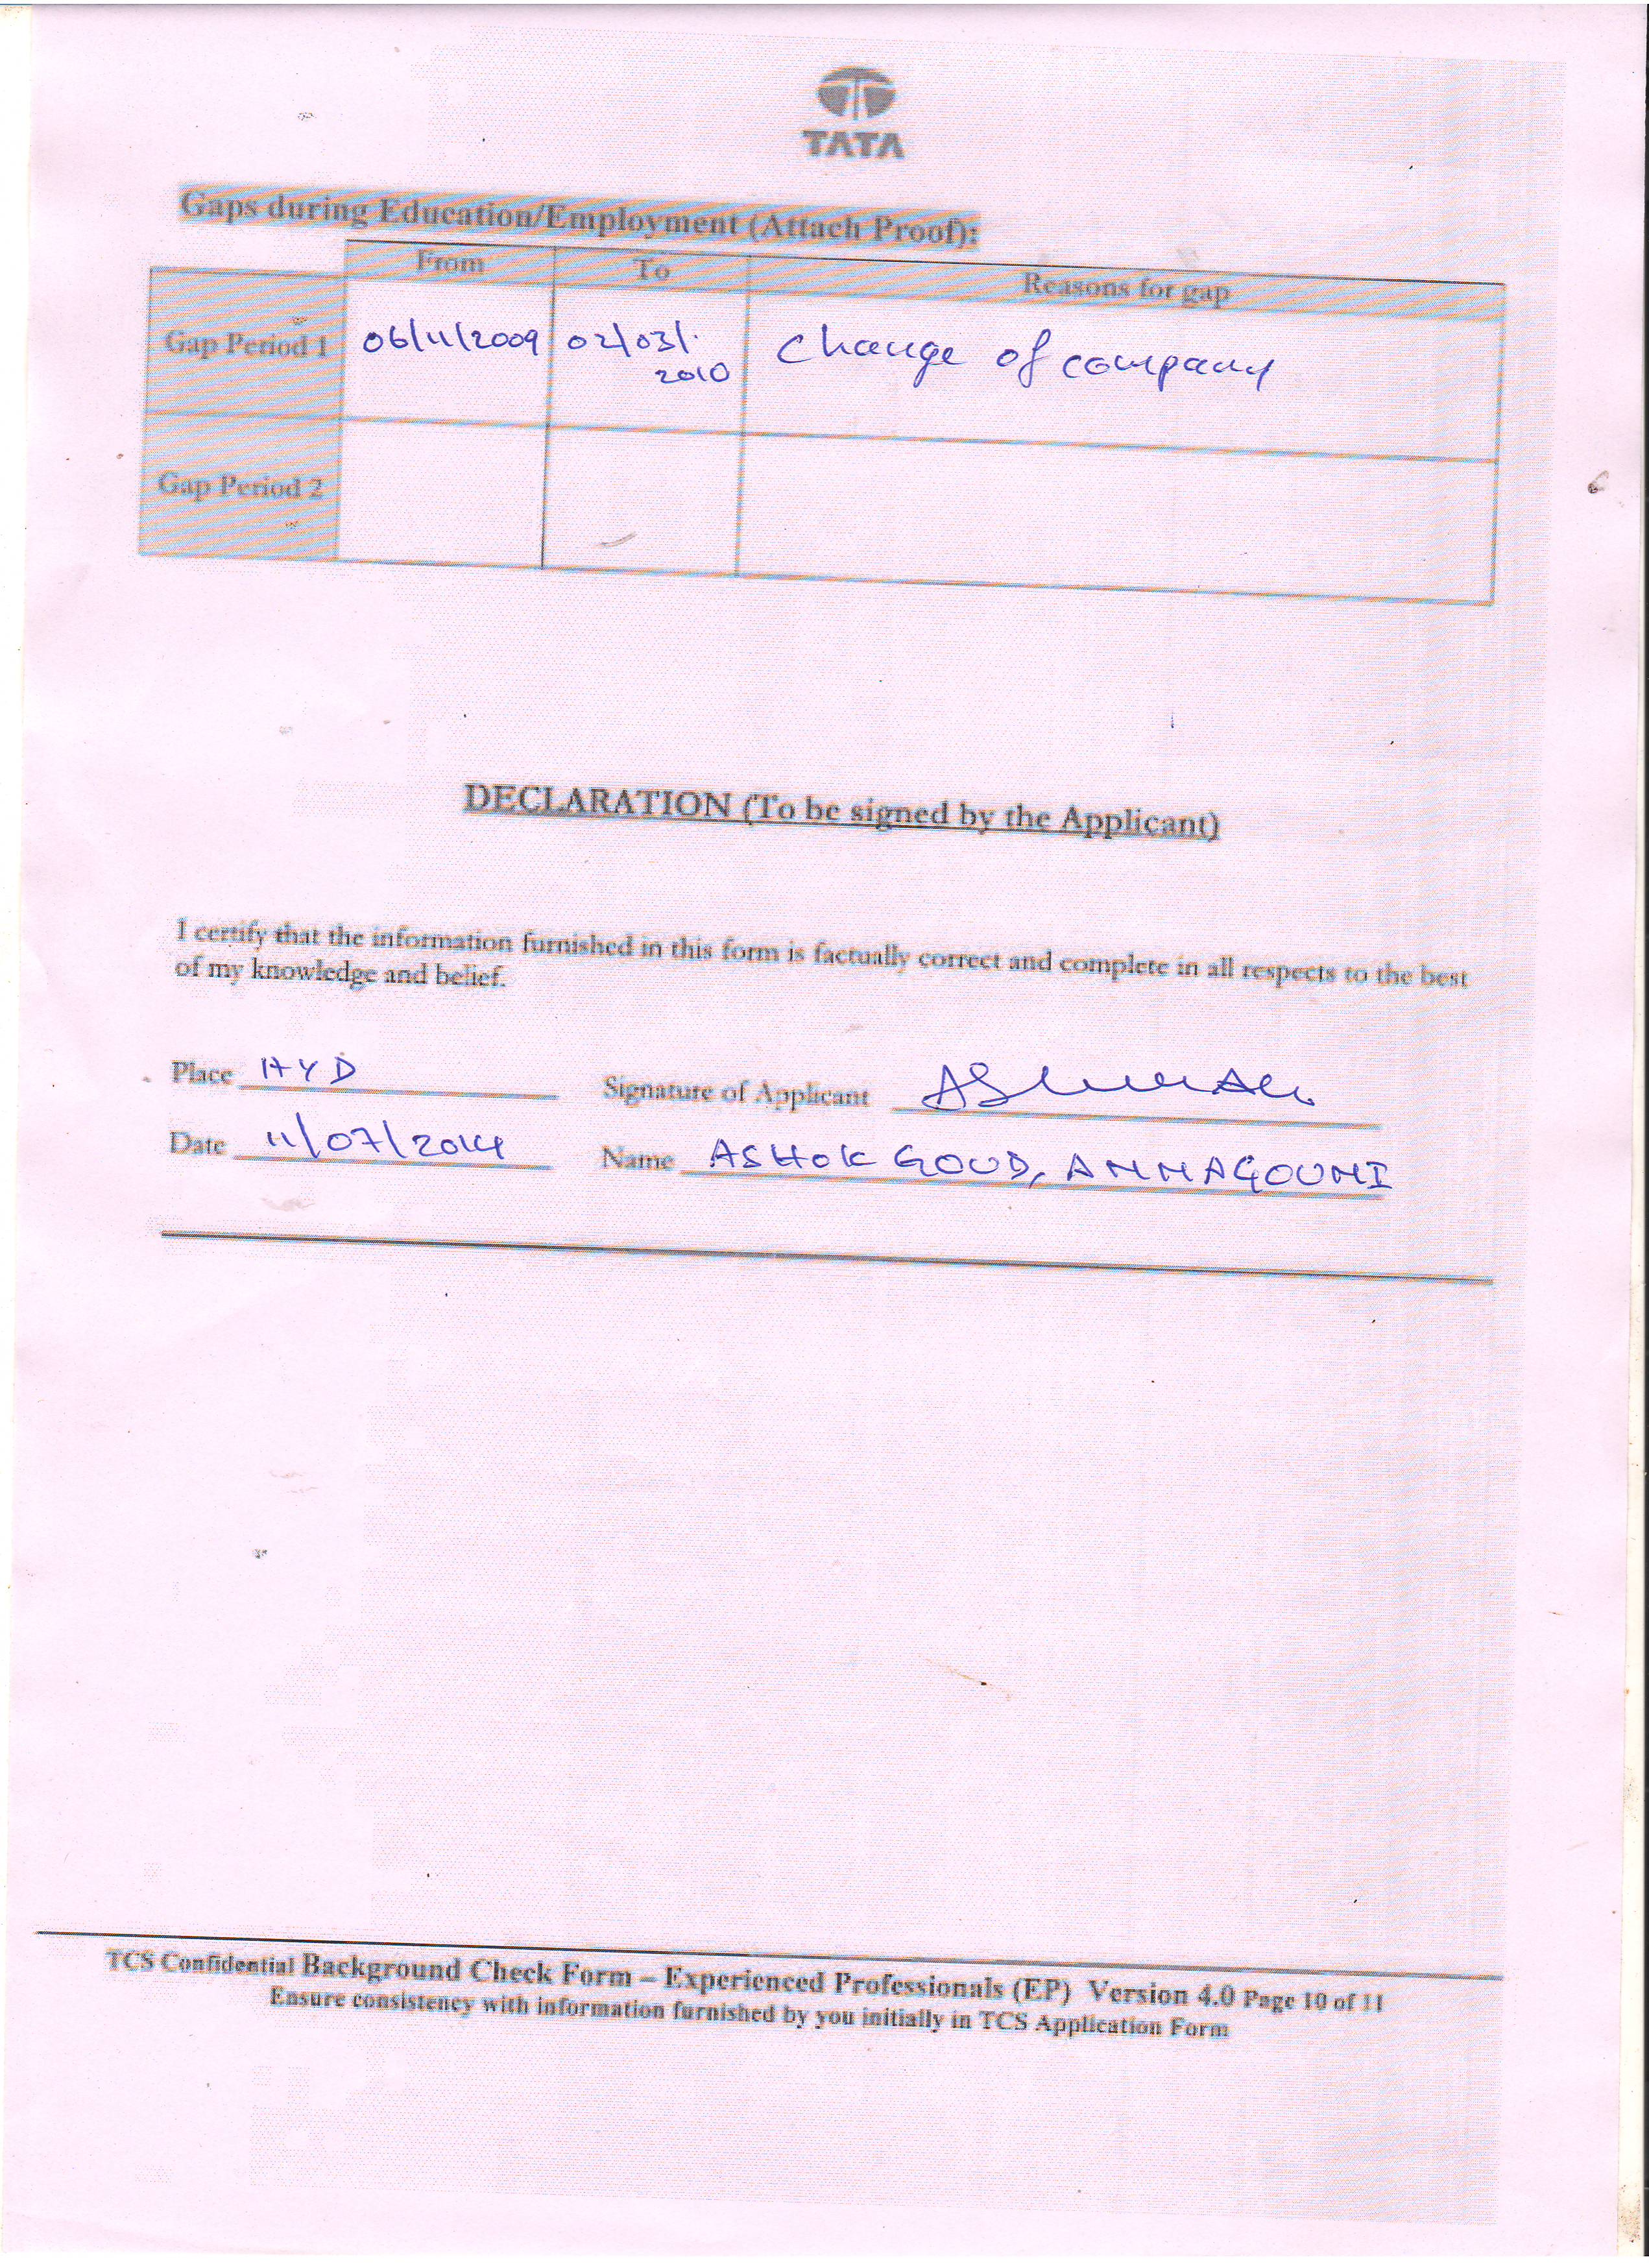 TATA
Gaps during Education/Employment (Attach Proof):
From To Reasons for gap
Gap Period 1 06/11/2009 02/03/. 2010 Change of company
Gap Period 2
DECLARATION (To be signed by the Applicant)
I certify that the information furnished in this form is factually correct and complete in all respects to the best
of my knowledge and belief.
Place HYD Signature of Applicant
Date 11/07/2014 Name ASHOK GOUD, ANNAGOUNI
TCS Confidential Background Check Form – Experienced Professionals (EP) Version 4.0 Page 10 of 11
Ensure consistency with information furnished by you initially in TCS Application Form